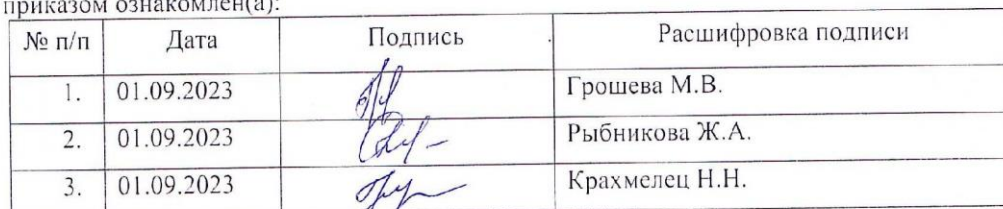 приказом ознакомлен(а):
№ п/п Дата Подпись Расшифровка подписи
1. 01.09.2023 Грошева М.В.
2. 01.09.2023 Рыбникова Ж.А.
3. 01.09.2023 Крахмелец Н.Н.